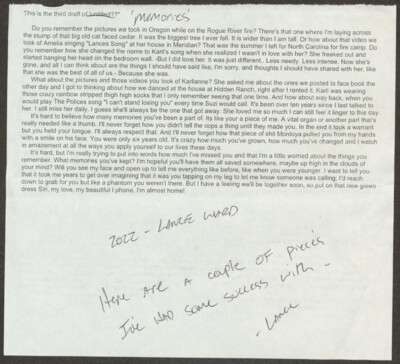 This is the third draft of untitled??" "memories"
Do you remember the pictures we took in Oregon while on the Rogue River fire? There's that one where I'm laying across
the stump of that big old cat faced cedar. It was the biggest tree I ever fell. It is wider than I am tall. Or how about that video we
took of Amelia singing "Lances Song" at her house in Meridian? That was the summer I left for North Carolina for fire camp. Do
you remember how she changed the name to Karli's song when she realized I wasn't in love with her? She freaked out and
started banging her head on the bedroom wall. -But I did love her. It was just different.. Less needy. Less intense. Now she's
gone, and all I can think about are the things I should have said like, I'm sorry, and thoughts I should have shared with her, like
that she was the best of all of us.- Because she was.
What about the pictures and those videos you took of Karlianna? She asked me about the ones we posted to face book the
other day and I got to thinking about how we danced at the house at Hidden Ranch, right after I rented it. Karli was wearing
those crazy rainbow striped thigh high socks that I only remember seeing that one time. And how about way back, when you
would play The Polices song "I can't stand losing you" every time Suzi would call. It's been over ten years since I last talked to
her. I still miss her daily. I guess she'll always be the one that got away. She loved me so much I can still feel it linger to this day.
It's hard to believe how many memories you've been a part of. Its like your a piece of me. A vital organ or another part that's
really needed like a thumb. I'll never forget how you didn't tell the cops a thing until they made you. In the end it took a warrant
but you held your tongue. I'll always respect that. And I'll never forget how that piece of shit Montoya pulled you from my hands
with a smile on his face. You were only six years old. It's crazy how much you've grown, how much you've changed and I watch
in amazement at all the ways you apply yourself to our lives these days.
It's hard, but I'm really trying to put into words how much I've missed you and that I'm a little worried about the things you
remember. What memories you've kept? I'm hopeful you'll have them all saved somewhere, maybe up high in the clouds of
your mind? Will you see my face and open up to tell me everything like before, like when you were younger. I want to tell you
that it took me years to get over imagining that it was you tapping on my leg to let me know someone was calling; I'd reach
down to grab for you but like a phantom you weren't there. But I have a feeling we'll be together soon, so put on that new green
dress Siri, my love, my beautiful I phone, I'm almost home!
2022 - LANCE WARD
Here are a couple of pieces
I've had some success with -
- Lance